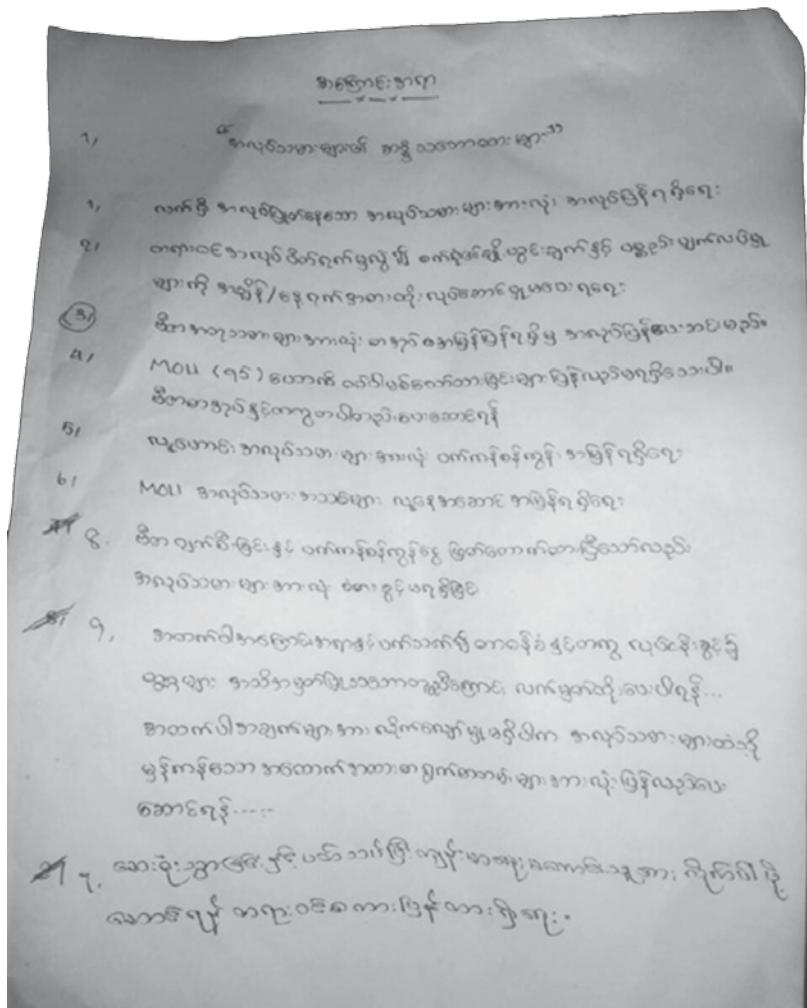 အကြောင်းအရာ
၁၊ "အလုပ်သမားများ၏ ဆန္ဒသဘောထားများ"
၁၊ လက်ရှိ အလုပ်ပြုတ်နေသော အလုပ်သမားများအားလုံး အလုပ်ပြန်ရရှိရေး
၂၊ တရားဝင်အလုပ်ပိတ်ရက်မှလွဲ၍ စက်ရုံ၏ချို့ယွင်းချက်နှင့် ပစ္စည်းပျက်လပ်မှု
များကို အချိန်/နေ့ရက်အစားထိုးလုပ်ဆောင်မှုမပေးရရေး
(3) ဗီဇာ အလုပ်သမားများအားလုံး စာအုပ် အမြန်ပြန်ရရှိမှ အလုပ်ပြန်ပေးဆင်းမည်။
4၊ MOU (၅၅) ယောက် ဝင်ပါဖစ်တောက်ထားခြင်းများပြန်လည်မရရှိသေးပါ။
ဗီဇာစာအုပ်နှင့်တကွတပါတည်းပေးဆောင်ရန်
5၊ လူဟောင်း အလုပ်သမားများအားလုံး ဝက်ကန်စန်ကွန်း အမြန်ရရှိရေး
6၊ MOU အလုပ်သမားအသစ်များ လူနေအဆောင် အမြန်ရရှိရေး
၈. ဗီဇာ ပျက်စီးခြင်းနှင့် ဝက်ကန်စန်ကွန်ငွေ ဖြတ်တောက်ထားပြီးသော်လည်း
အလုပ်သမားများအားလုံး ခံစားခွင့်မရရှိခြင်း
၉. အထက်ပါအကြောင်းအရာနှင့်ပတ်သက်၍ တာဝန်ခံနှင့်တကွ လုပ်ငန်းခွင်ရှိ
များ အသိအမှတ်ပြုသဘောတူညီကြောင်း လက်မှတ်ထိုးပေးပါရန်...
အထက်ပါအချက်များအား လိုက်လျောမှုမရှိပါက အလုပ်သမားများထံသို့
မှန်ကန်သော အထောက်အထားစာရွက်စာတမ်းများအားလုံး ပြန်လည်ပေး
ဆောင်ရန်.....
၇. ဆေးရုံးသွားခြင်းနှင့် ပတ်သတ်ပြီး ကျန်းမာရေးစောင့်သူအား လိုက်ပါပို့
ဆောင်ရန် တရားဝင်စကားပြန်ထားရှိရေး.